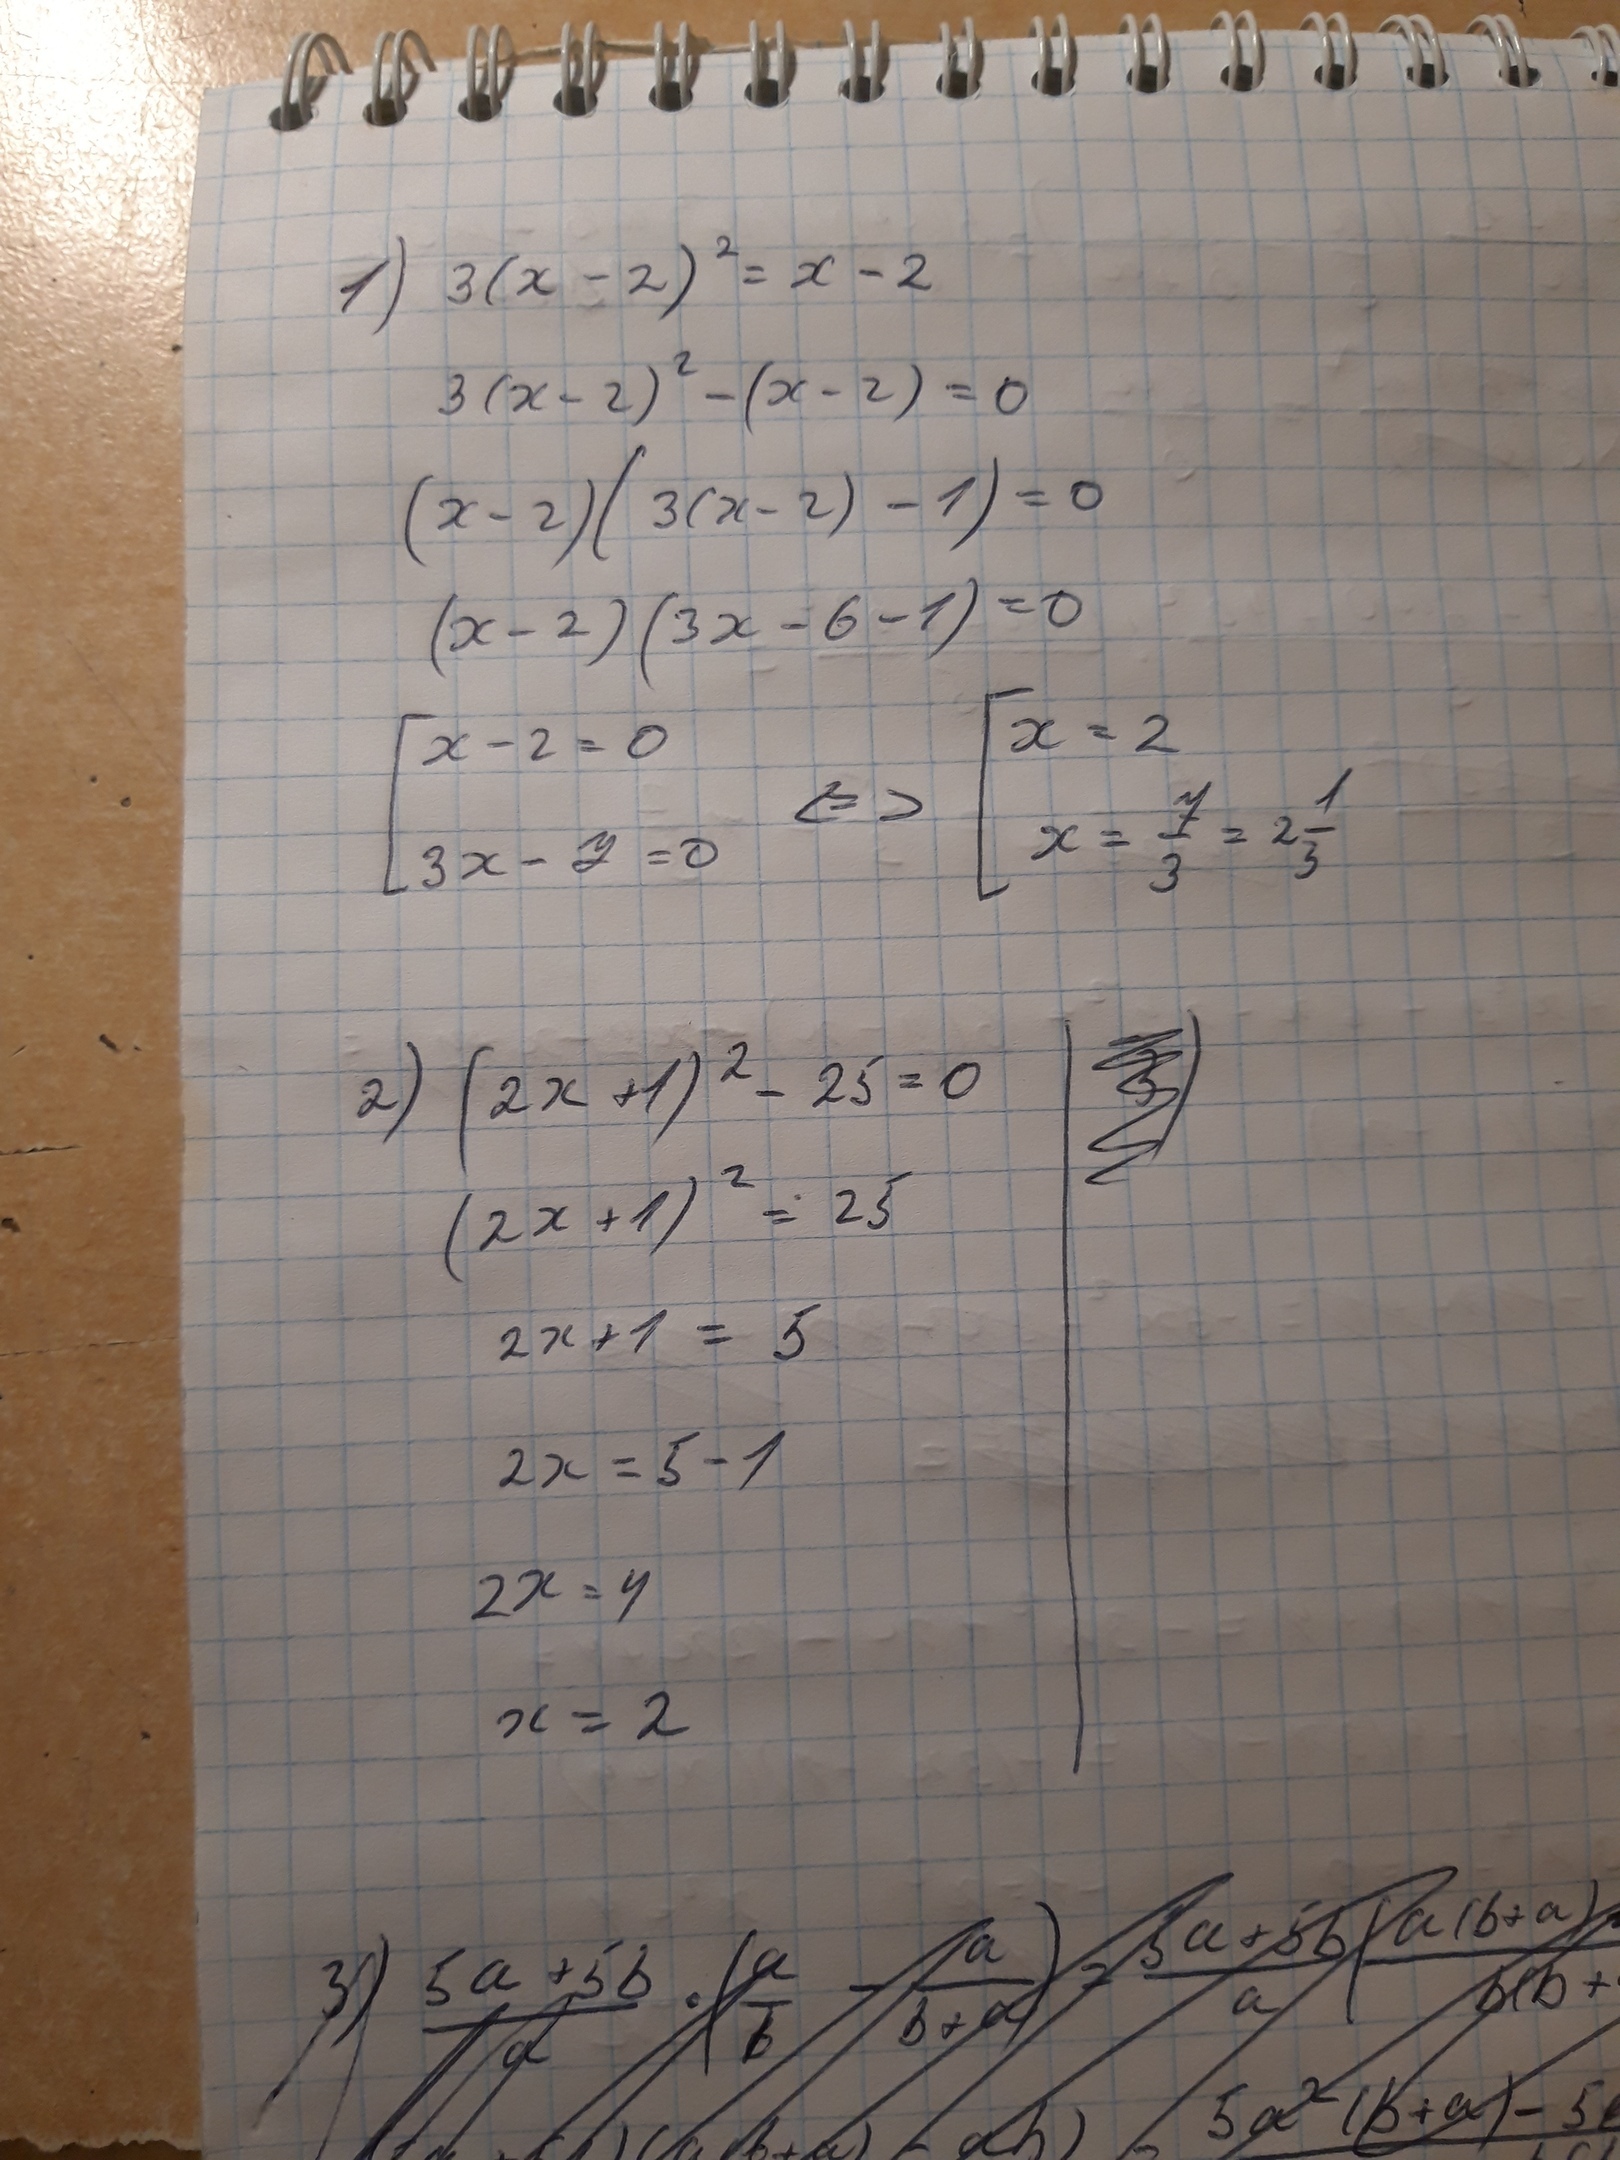 1) 3(x-2)² = x-2
3(x-2)² -(x-2) = 0
(x-2)(3(x-2)-1) = 0
(x-2)(3x-6-1) = 0
[x-2=0 <=> [x=2
3x-7=0 x = 7/3 = 2 1/3
2) (2x+1)² - 25 = 0
(2x+1)² = 25
2x+1 = 5
2x = 5-1
2x = 4
x = 2
3) (5a+5b)/a · (a/b - a/(b+a)) = (5a+5b)/a (a(b+a)
5a²(b+a) - 5